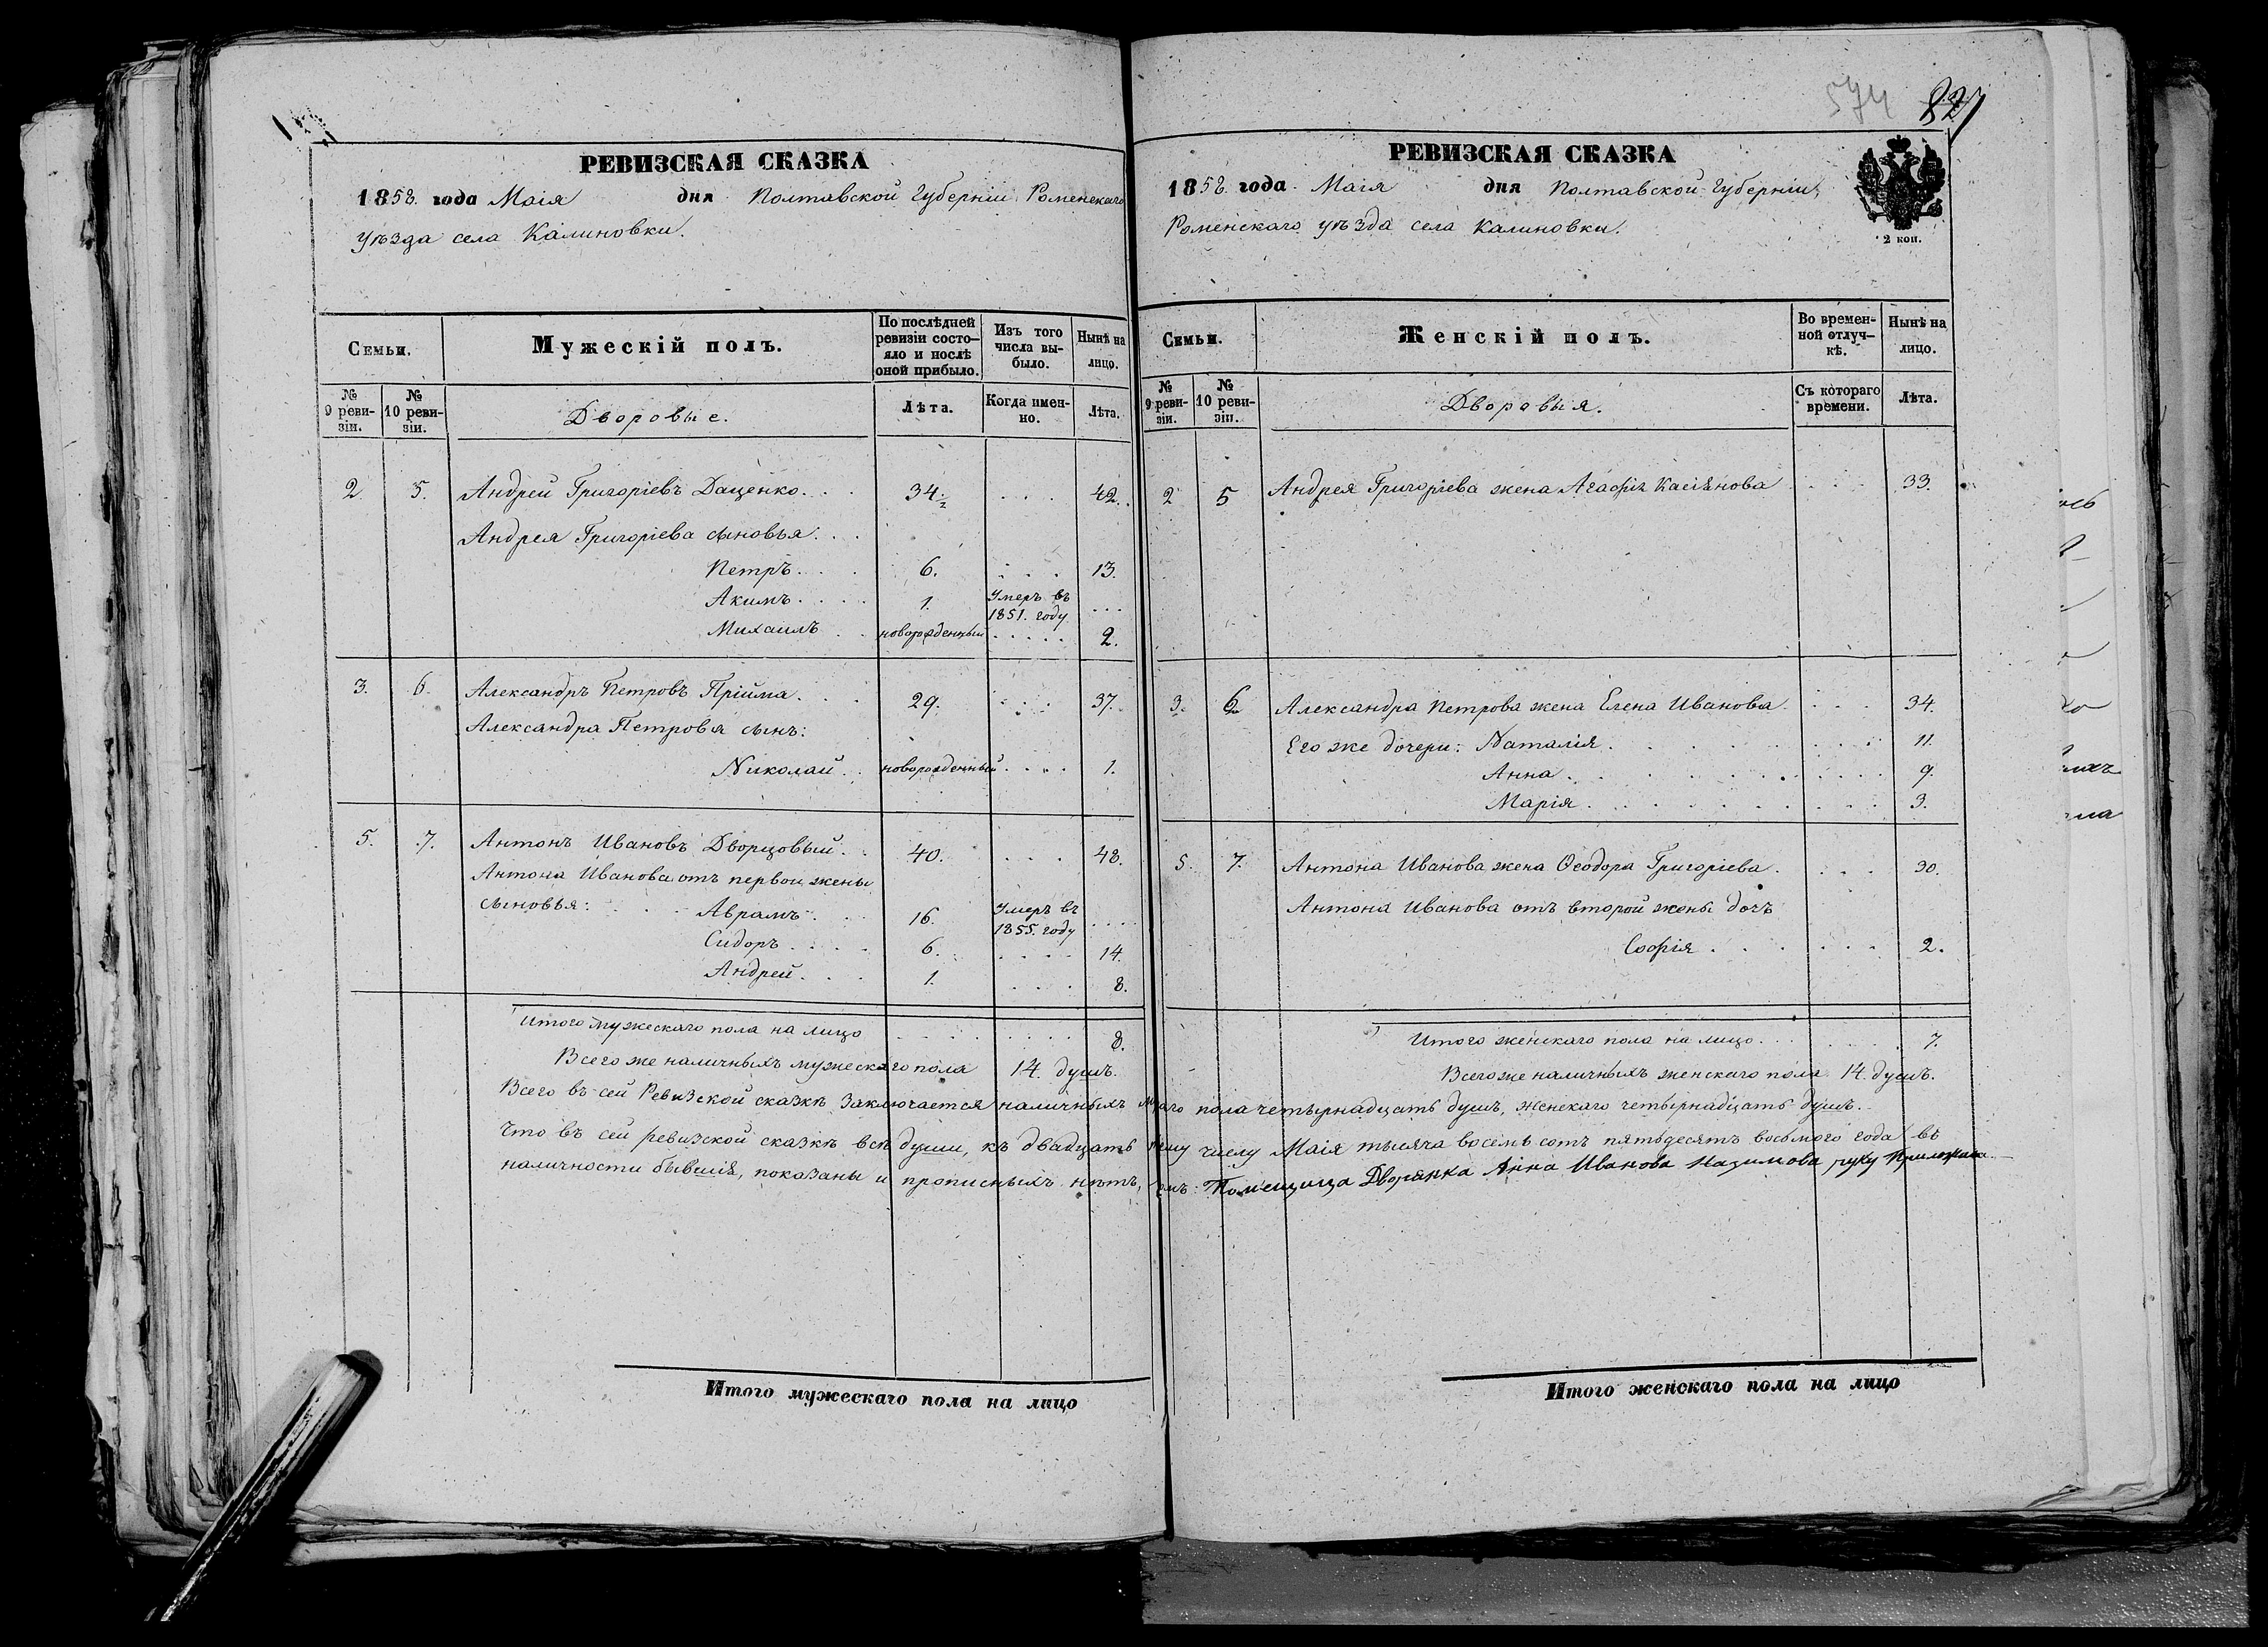 РЕВИЗСКАЯ СКАЗКА
1858. года Маія дня Полтавской Губерніи Роменскаго
Уѣзда села Калиновки.
Семьи.
Мужескій полъ.
По послѣдней
ревизіи состо-
яло и послѣ
оной прибыло.
Изъ того
числа вы-
было.
Нынѣ на
лицо.
№
9 реви-
зіи.
№
10 реви-
зіи.
Дворовые.
Лѣта.
Когда имен-
но.
Лѣта.
2. 5. Андрей Григоріевъ Даценко. . . 34. . . . 42.
Андрея Григоріева сыновья: . .
Петръ. . . . 6. . . . 13.
Акимъ. . . . 1. Умеръ въ
1851. году . . .
Михаилъ . . новорожденный . . . . . 2.
3. 6. Александръ Петровъ Прійма. . . 29. . . . 37.
Александра Петрова сынъ:
Николай . . новорожденный . . . . 1.
5. 7. Антонъ Ивановъ Дворцовый. . 40. . . . 48.
Антона Иванова отъ первой жены
сыновья: . . . Аврамъ. . . 16. Умеръ въ
1855. году . . .
Сидоръ. . . . 6. . . . . 14.
Андрей. . . . 1. . . . . 8.
Итого мужескаго пола на лицо . . . . . . . . 8.
Всего же наличныхъ мужескаго пола 14. душъ.
РЕВИЗСКАЯ СКАЗКА
574 827
1858. года Маія дня Полтавской Губерніи,
Роменскаго уѣзда села Калиновки.
2 коп.
Семьи.
Женскій полъ.
Во времен-
ной отлуч-
кѣ.
Нынѣ на
лицо.
№
9 реви-
зіи.
№
10 реви-
зіи.
Дворовыя.
Съ котораго
времени.
Лѣта.
2 5 Андрея Григоріева жена Агафія Касіянова . . . . 33.
3. 6 Александра Петрова жена Елена Иванова. . . . 34.
Его же дочери: Наталія. . . . . . . . 11.
Анна. . . . . . . . . . 9.
Марія. . . . . . . . . . 3.
5. 7. Антона Иванова жена Ѳеодора Григоріева. . . . 30.
Антона Иванова отъ второй жены дочь
Софія. . . . . . . 2.
Итого женскаго пола на лицо. . . . . . . 7.
Всего же наличныхъ женскаго пола 14. душъ.
Всего въ сей Ревизской сказкѣ заключается наличныхъ пола четырнадцать душъ, женскаго четырнадцать душъ.
Что въ сей ревизской сказкѣ всѣ души, къ двадцать числу Маія тысяча восемь сотъ пятьдесятъ восьмого года въ
наличности бывшія, показаны и прописныхъ нѣтъ, Помещица Дворянка Анна Иванова Назимова руку приложила
Итого мужескаго пола на лицо
Итого женскаго пола на лицо